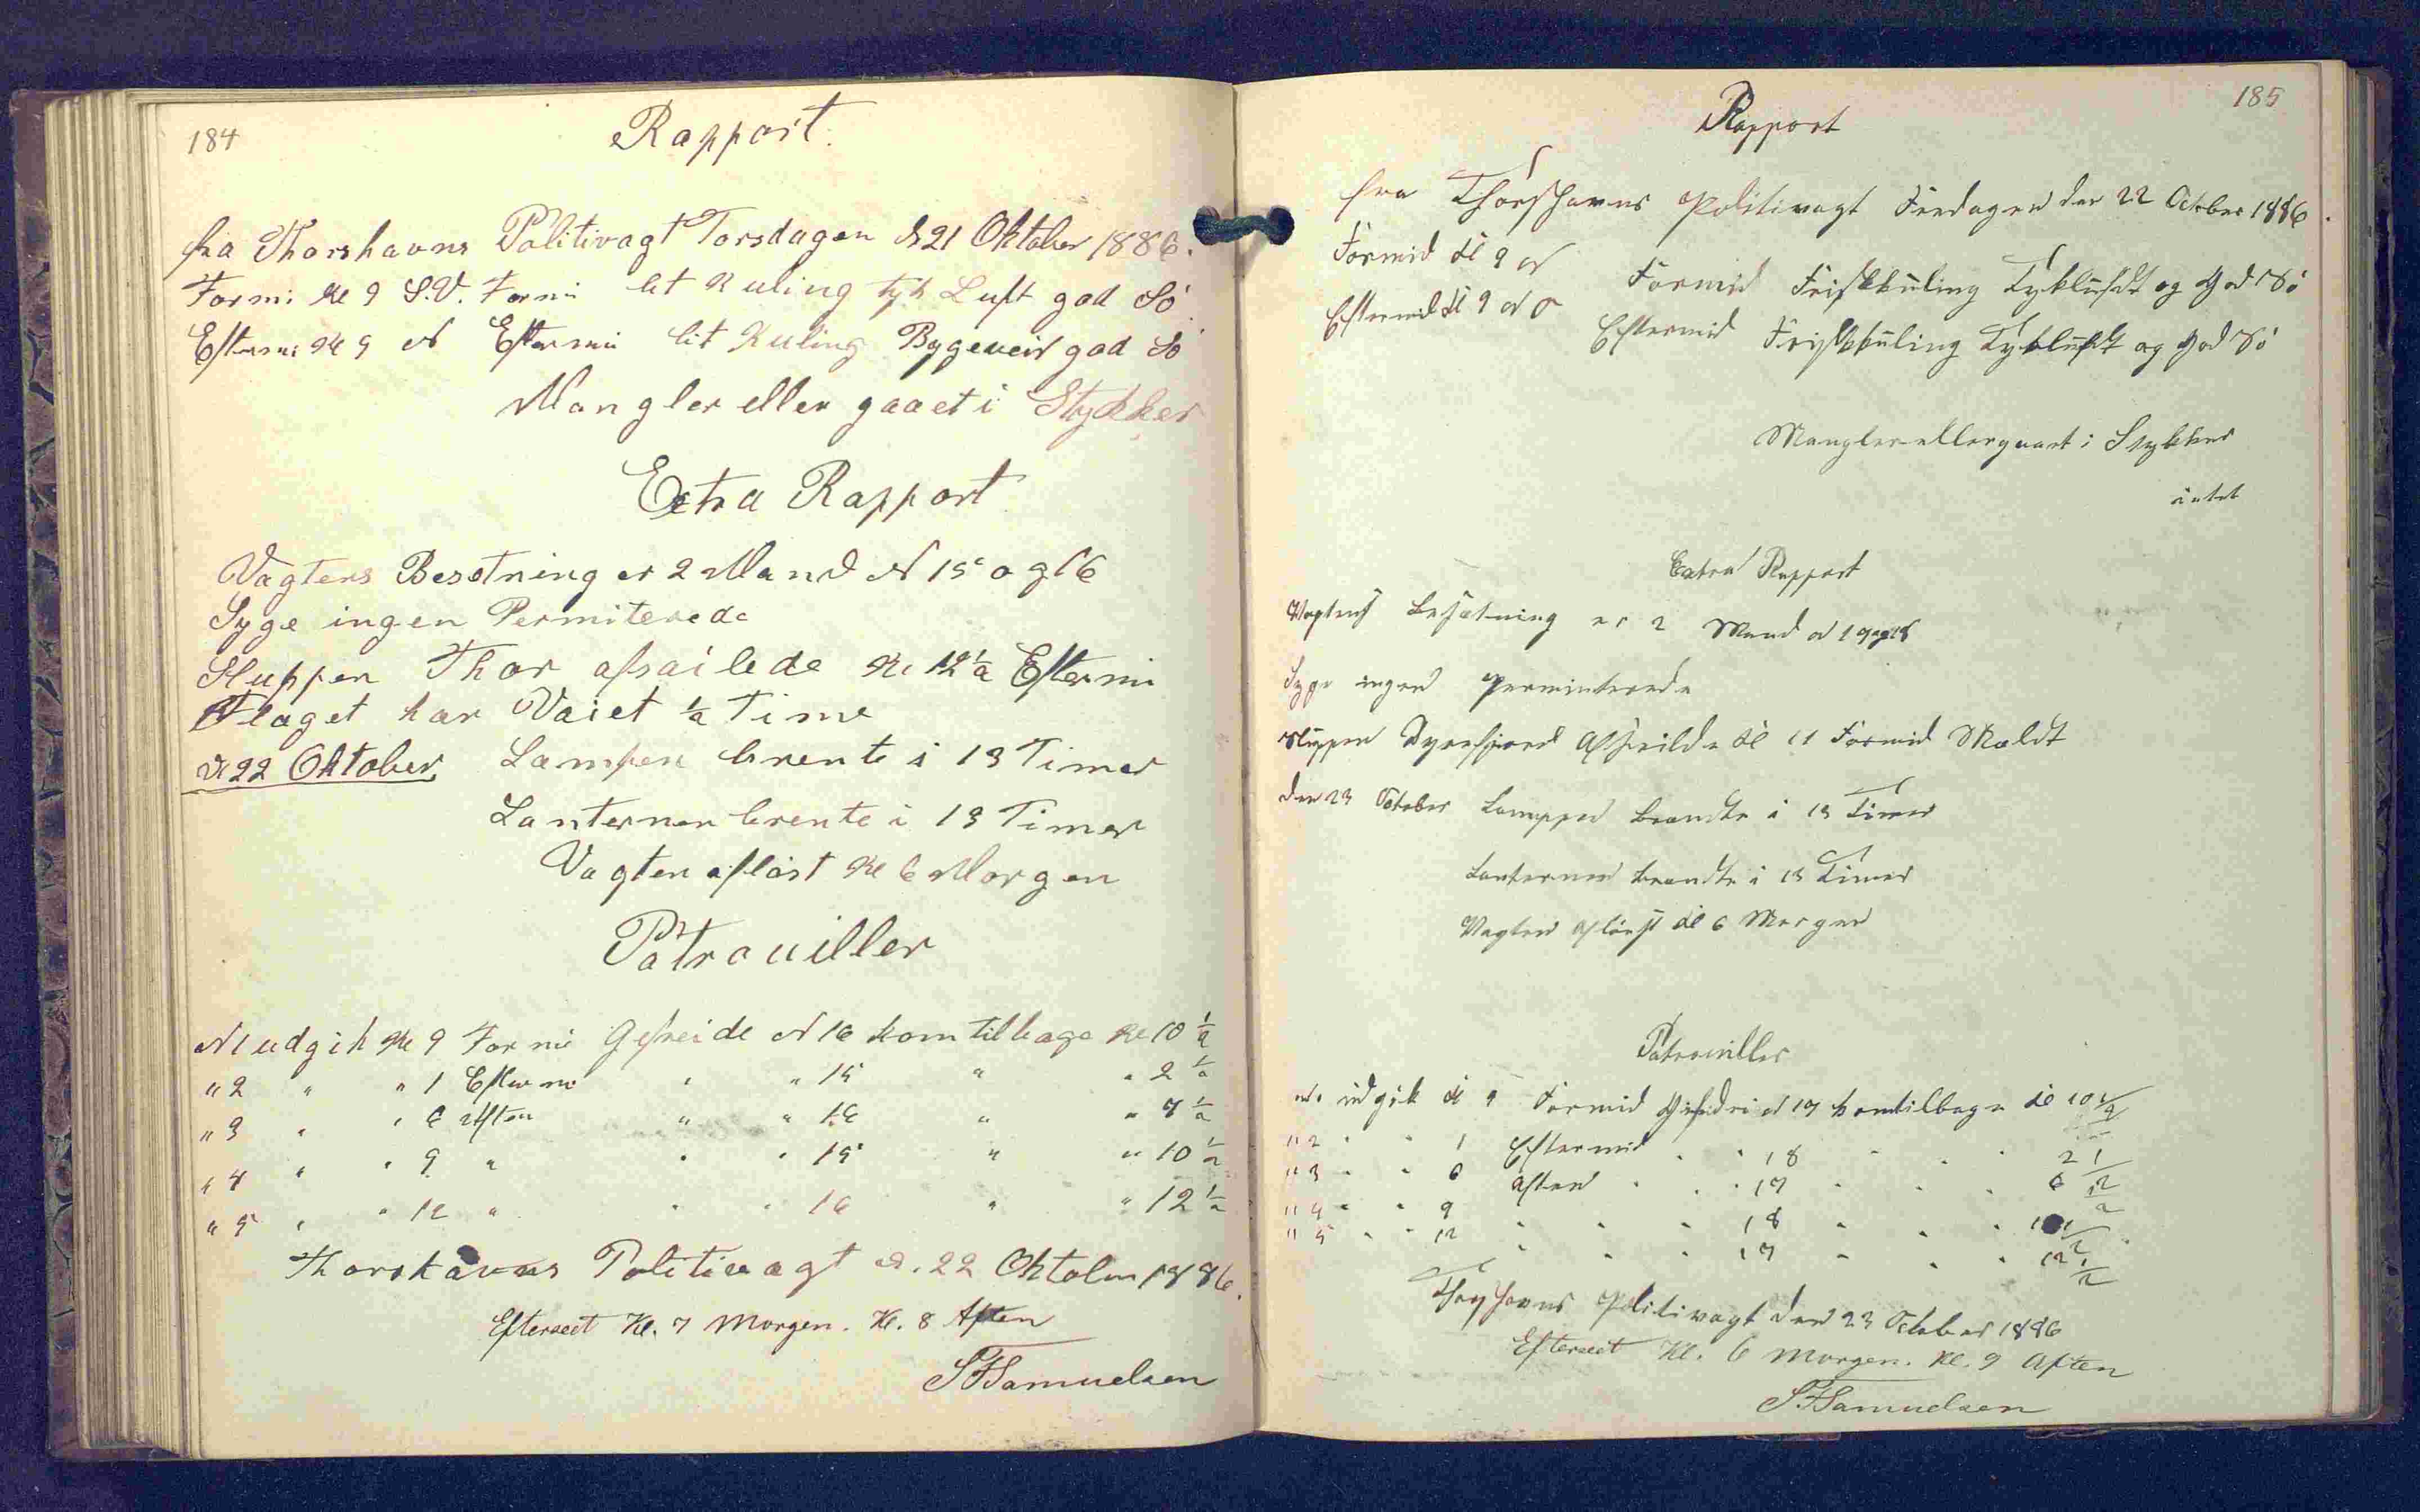 184
Rapport.
fra Thorshavns Politivagt Torsdagen d 21 Oktober 1886.
Formi Kl 9 S.V. Formi let Kuling tyk Luft god Sö
Eftermi Kl 9 N Eftermi let Kuling Bygeveir god Sö
Mangler eller gaaet i Stykker
Extra Rapport
Vagtens Besetning er 2 Mand N 15 og 16
Syge ingen Permiterede
Sluppen Thor afsailede Kl 12½ Eftermi
Flaget har Vaiet ½ Time
d 22 Oktober Lampen brente i 13 Timer
Lanternen brente i 13 Timer
Vagten aflöst Kl 6 Morgen
Patrouiller
N1 udgik Kl 9 Formi Gefreide N 16 kom tilbage Kl 10 ½
" 2 " " 1 Eftermi " " 15 " " 2 ½
" 3 " " 6 Aften " " 16 " " 7 ½
" 4 " " 9 " " " 15 " " 10 ½
" 5 " " 12 " " " 16 " " 12 ½
Thorshavns Politivagt d. 22 Oktober 1886.
Efterseet Kl. 7 Morgen. Kl. 8 Aften
SFSamuelsen
185
Rapport
fra Thorshavns Politivagt Fredagen den 22 October 1886.
Formid Kl 9 N Formid Friskkuling Tykluft og God Sö
Eftermid Kl 9 N O Eftermid Friskkuling Tykluft og God Sö
Mangler eller gaaet i Stykker
intet
Extra Rapport
Vagtens Besætning er 2 Mand N 17 og 18
Syge ingen Perminterede
Sluppen Dyrefjord Afseilde Kl 11 Formid
den 23 October Lampen brændte i 13 Timer
Lanternen brændte i 13 Timer
Vagten Aflöst Kl 6 Morgen
Patrouiller
N1 udgik Kl 9 Formid N 17 kom tilbage Kl 10 ½
" 2 " " 1 Eftermid " " 18 " " " 2 ½
" 3 " " 6 Aften " " 17 " " " 6 ½
" 4 " " 9 " " " 18 " " " 10 ½
" 5 " " 12 " " " 17 " " " 12 ½
Thorshavns Politivagt den 23 October 1886
Efterseet Kl. 6 Morgen. Kl. 9 Aften
SFSamuelsen